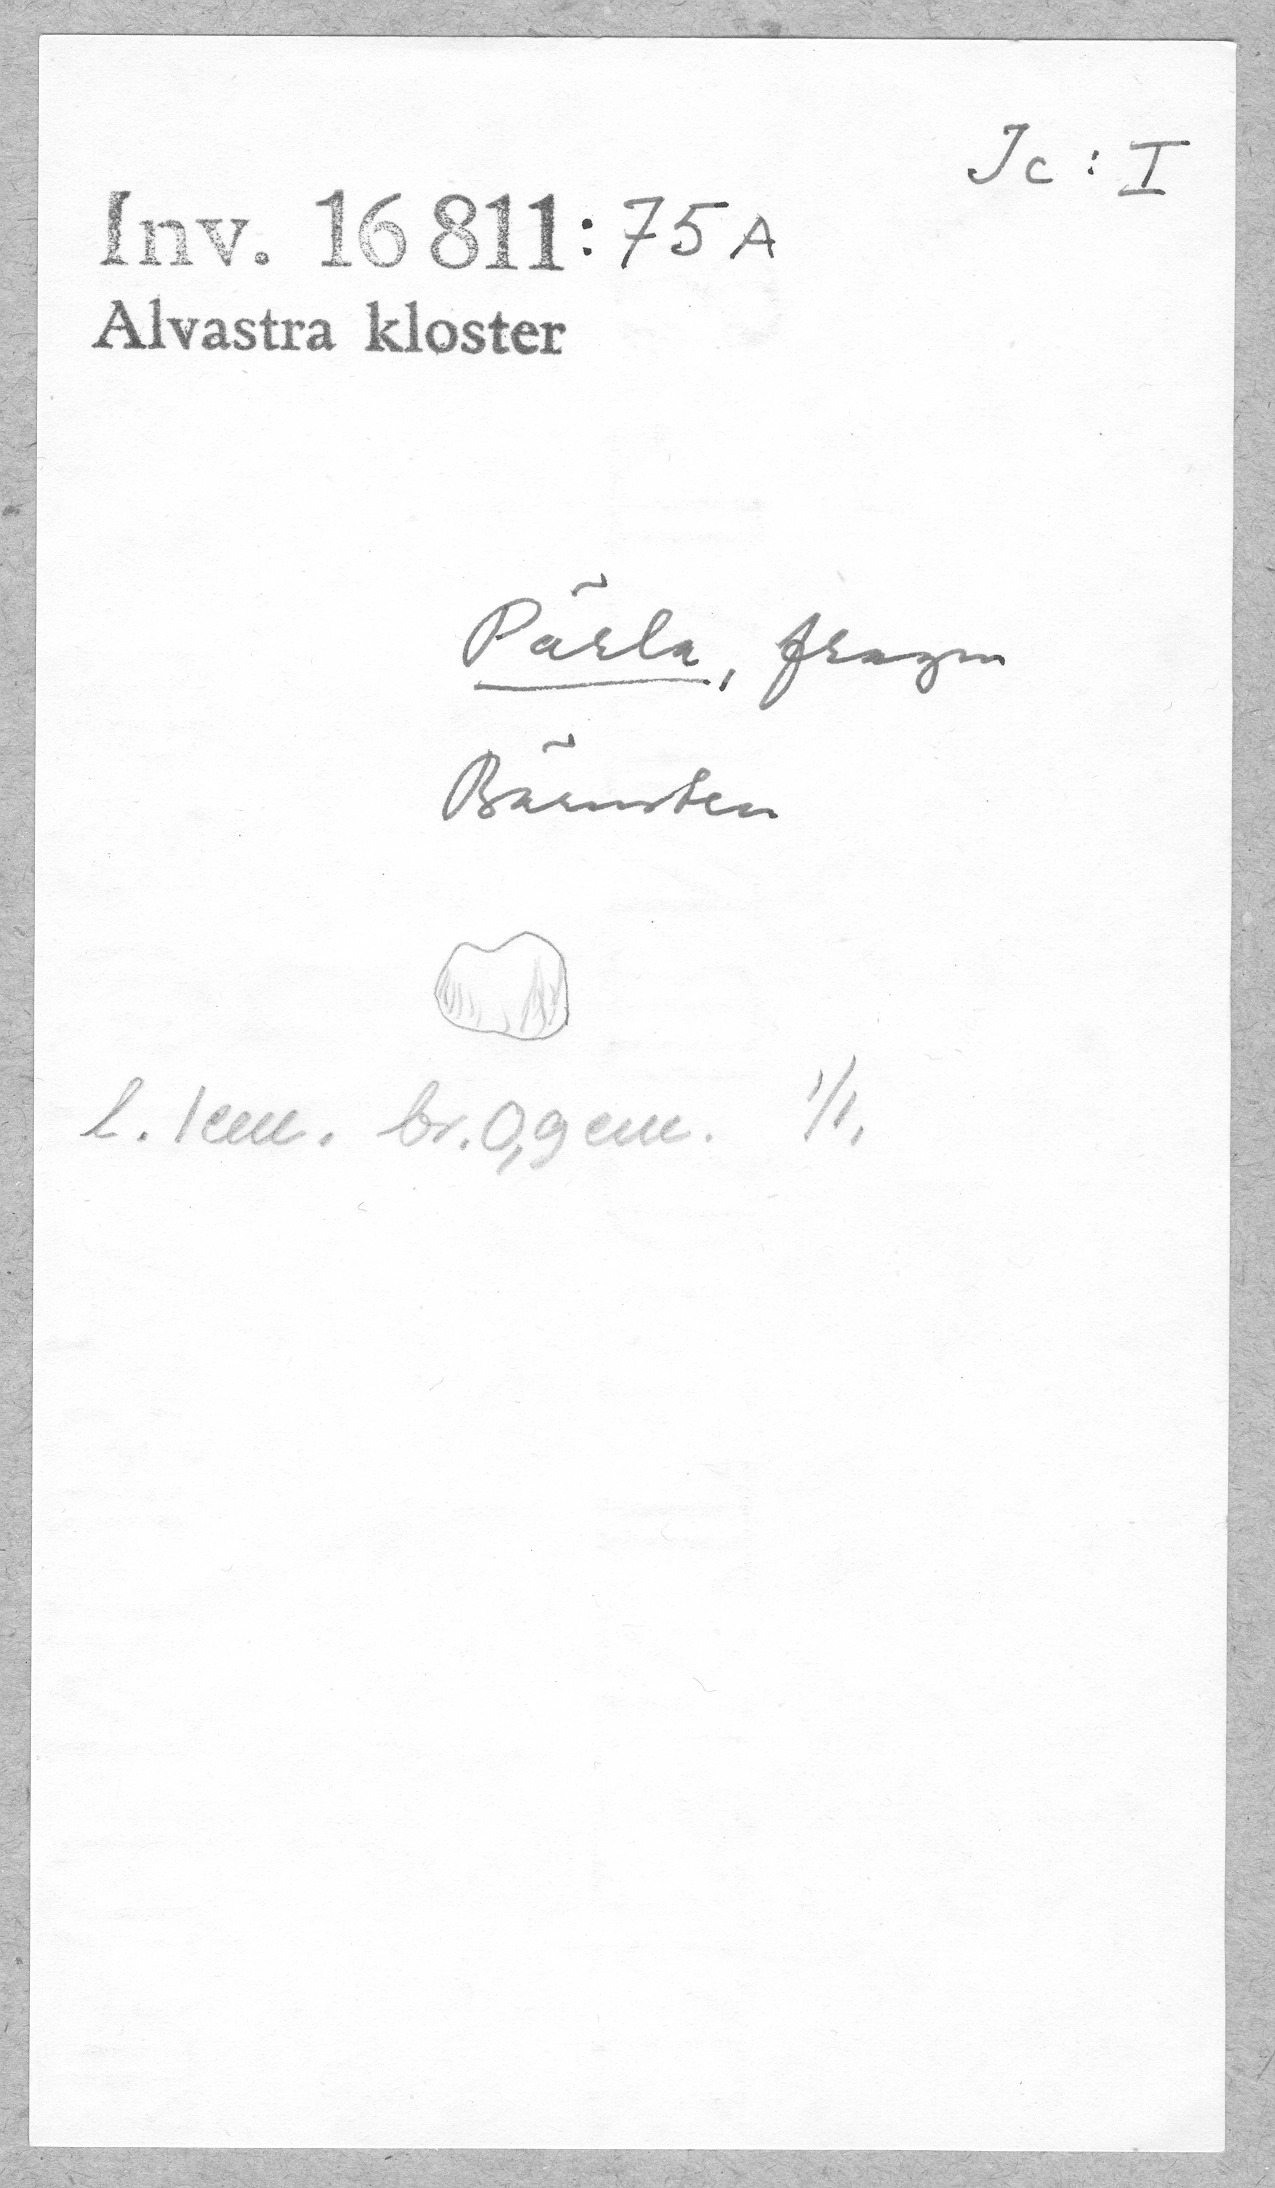 Jc : I
Inv. 16 811:75A
Alvastra kloster
Pärla, fragm
Bärnsten
l. 1cm. br. 0,9 cm. 1/1.